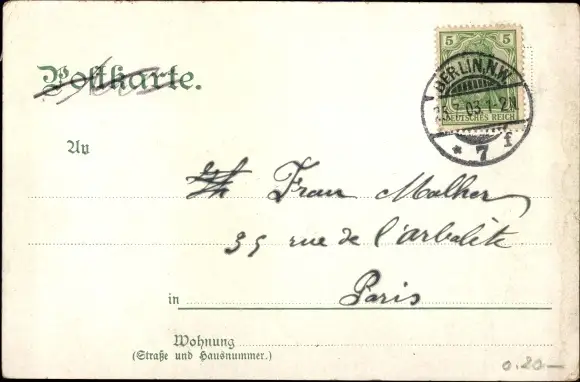 Postkarte.
5 5
BERLIN.N.W.
03.1-2N
DEUTSCHES REICH
* 7 f
An
Frau Malher
35 rue de l'arbalète
in Paris
Wohnung
(Straße und Hausnummer.)
0.20—